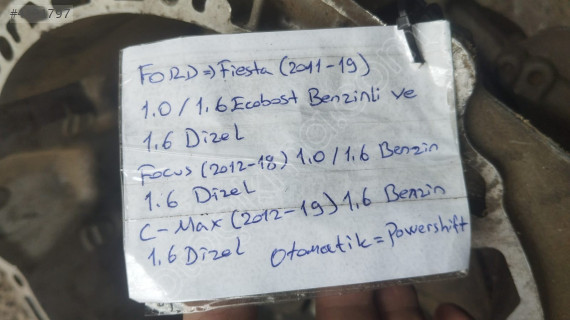 FORD => Fiesta (2011-19)
1.0 / 1.6 Ecobost Benzinli ve
1.6 Dizel
Focus (2012-18) 1.0 / 1.6 Benzin
1.6 Dizel
C-Max (2012-19) 1.6 Benzin
1.6 Dizel
Otomatik = Powershift